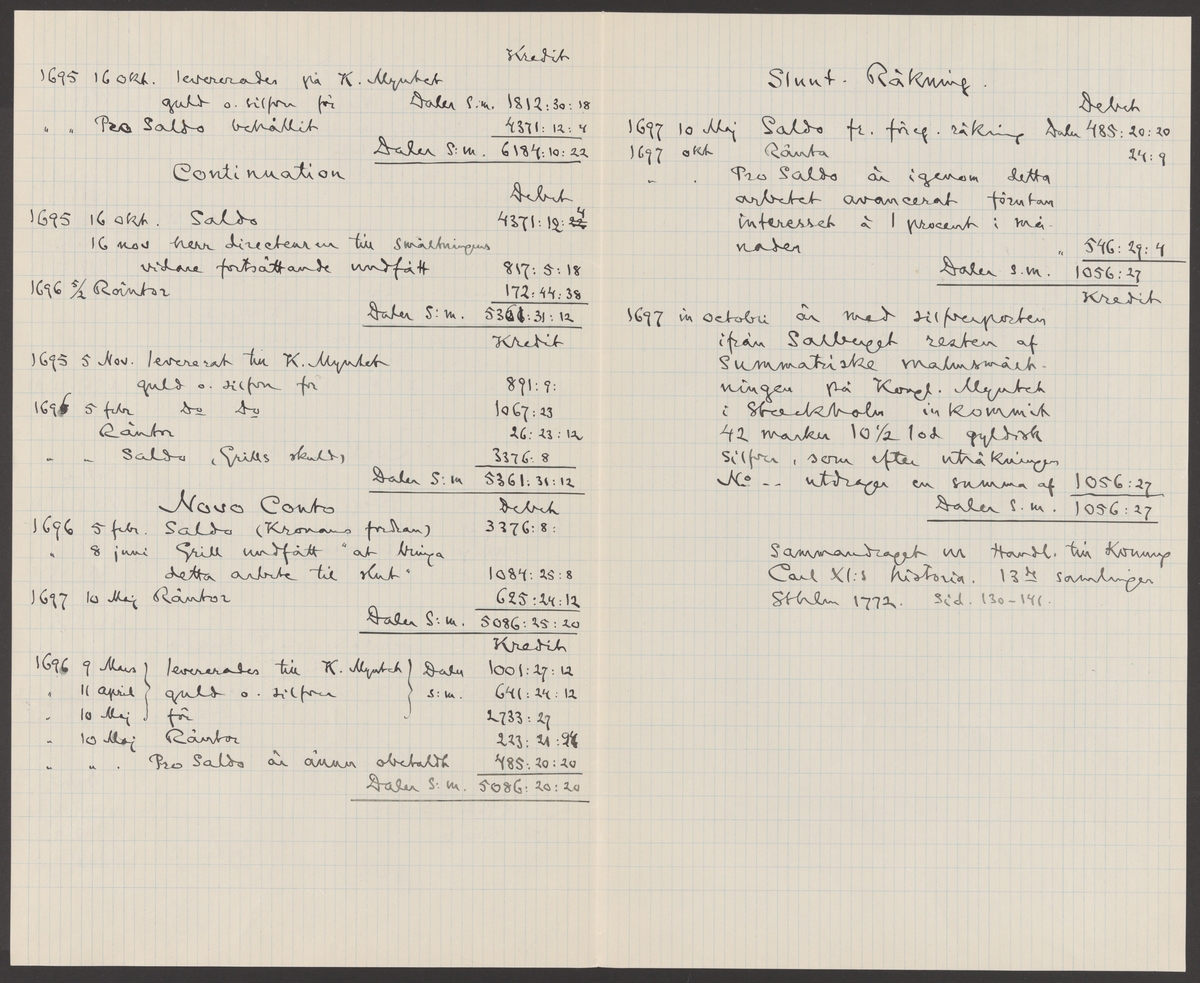 Kredit
1695 16 okt. levererades på K. Myntet
guld o. silfver för Daler S.m. 1812:30:18
" " Pro Saldo behållit 4371:12:4
Daler S:m. 6184:10:22
Continuation
Debet
1695 16 okt. Saldo 4371:12:4
16 nov herr directeuren till smältningens
vidare fortsättande undfått 817:5:18
1696 5/2 Räntor 172:44:38
Daler S:m. 5361:31:12
Kredit
1695 5 Nov. levererat till K. Myntet
guld o. silfver för 891:9:
1696 5 febr Do Do 1067:23
Räntor 26:23:12
" " Saldo (Grills skuld) 3376:8
Daler S:m 5361:31:12
Novo Conto Debet
1696 5 febr. Saldo (Kronans fordran) 3376:8:
" 8 juni Grill undfått "at bringa
detta arbete til slut" 1084:25:8
1697 10 Maj Räntor 625:24:12
Daler S:m. 5086:25:20
Kredit
1696 9 Mars } levererades till K. Myntet } Daler 1001:27:12
" 11 april } guld o. silfver } S:m. 641:24:12
" 10 Maj } för 2733:27
" 10 Maj Räntor 223:21:
" " . Pro Saldo är ännu obetaldt 485:20:20
Daler S:m. 5086:20:20
Slut-Räkning.
Debet
1697 10 Maj Saldo fr. föreg. räkning Daler 485:20:20
1697 okt Ränta 24:9
" . Pro Saldo är igenom detta
arbetet avancerat förutan
interesset à 1 procent i må-
naden " 546:29:4
Daler S.m. 1056:27
Kredit
1697 in octobri är med silfverporten
ifrån Salberget resten af
Summatriske malmsmält-
ningen på Kongl. Myntet
i Stockholm inkommit
42 marker 10 1/2 lod gyldisk
silfver, som efter uträkningen
No -- utdrager en summa af 1056:27
Daler S.m. 1056:27
Sammandraget ur Handl. till Konung
Carl XI:s historia. 13de samlingen
Sthlm 1772. Sid. 130-141.